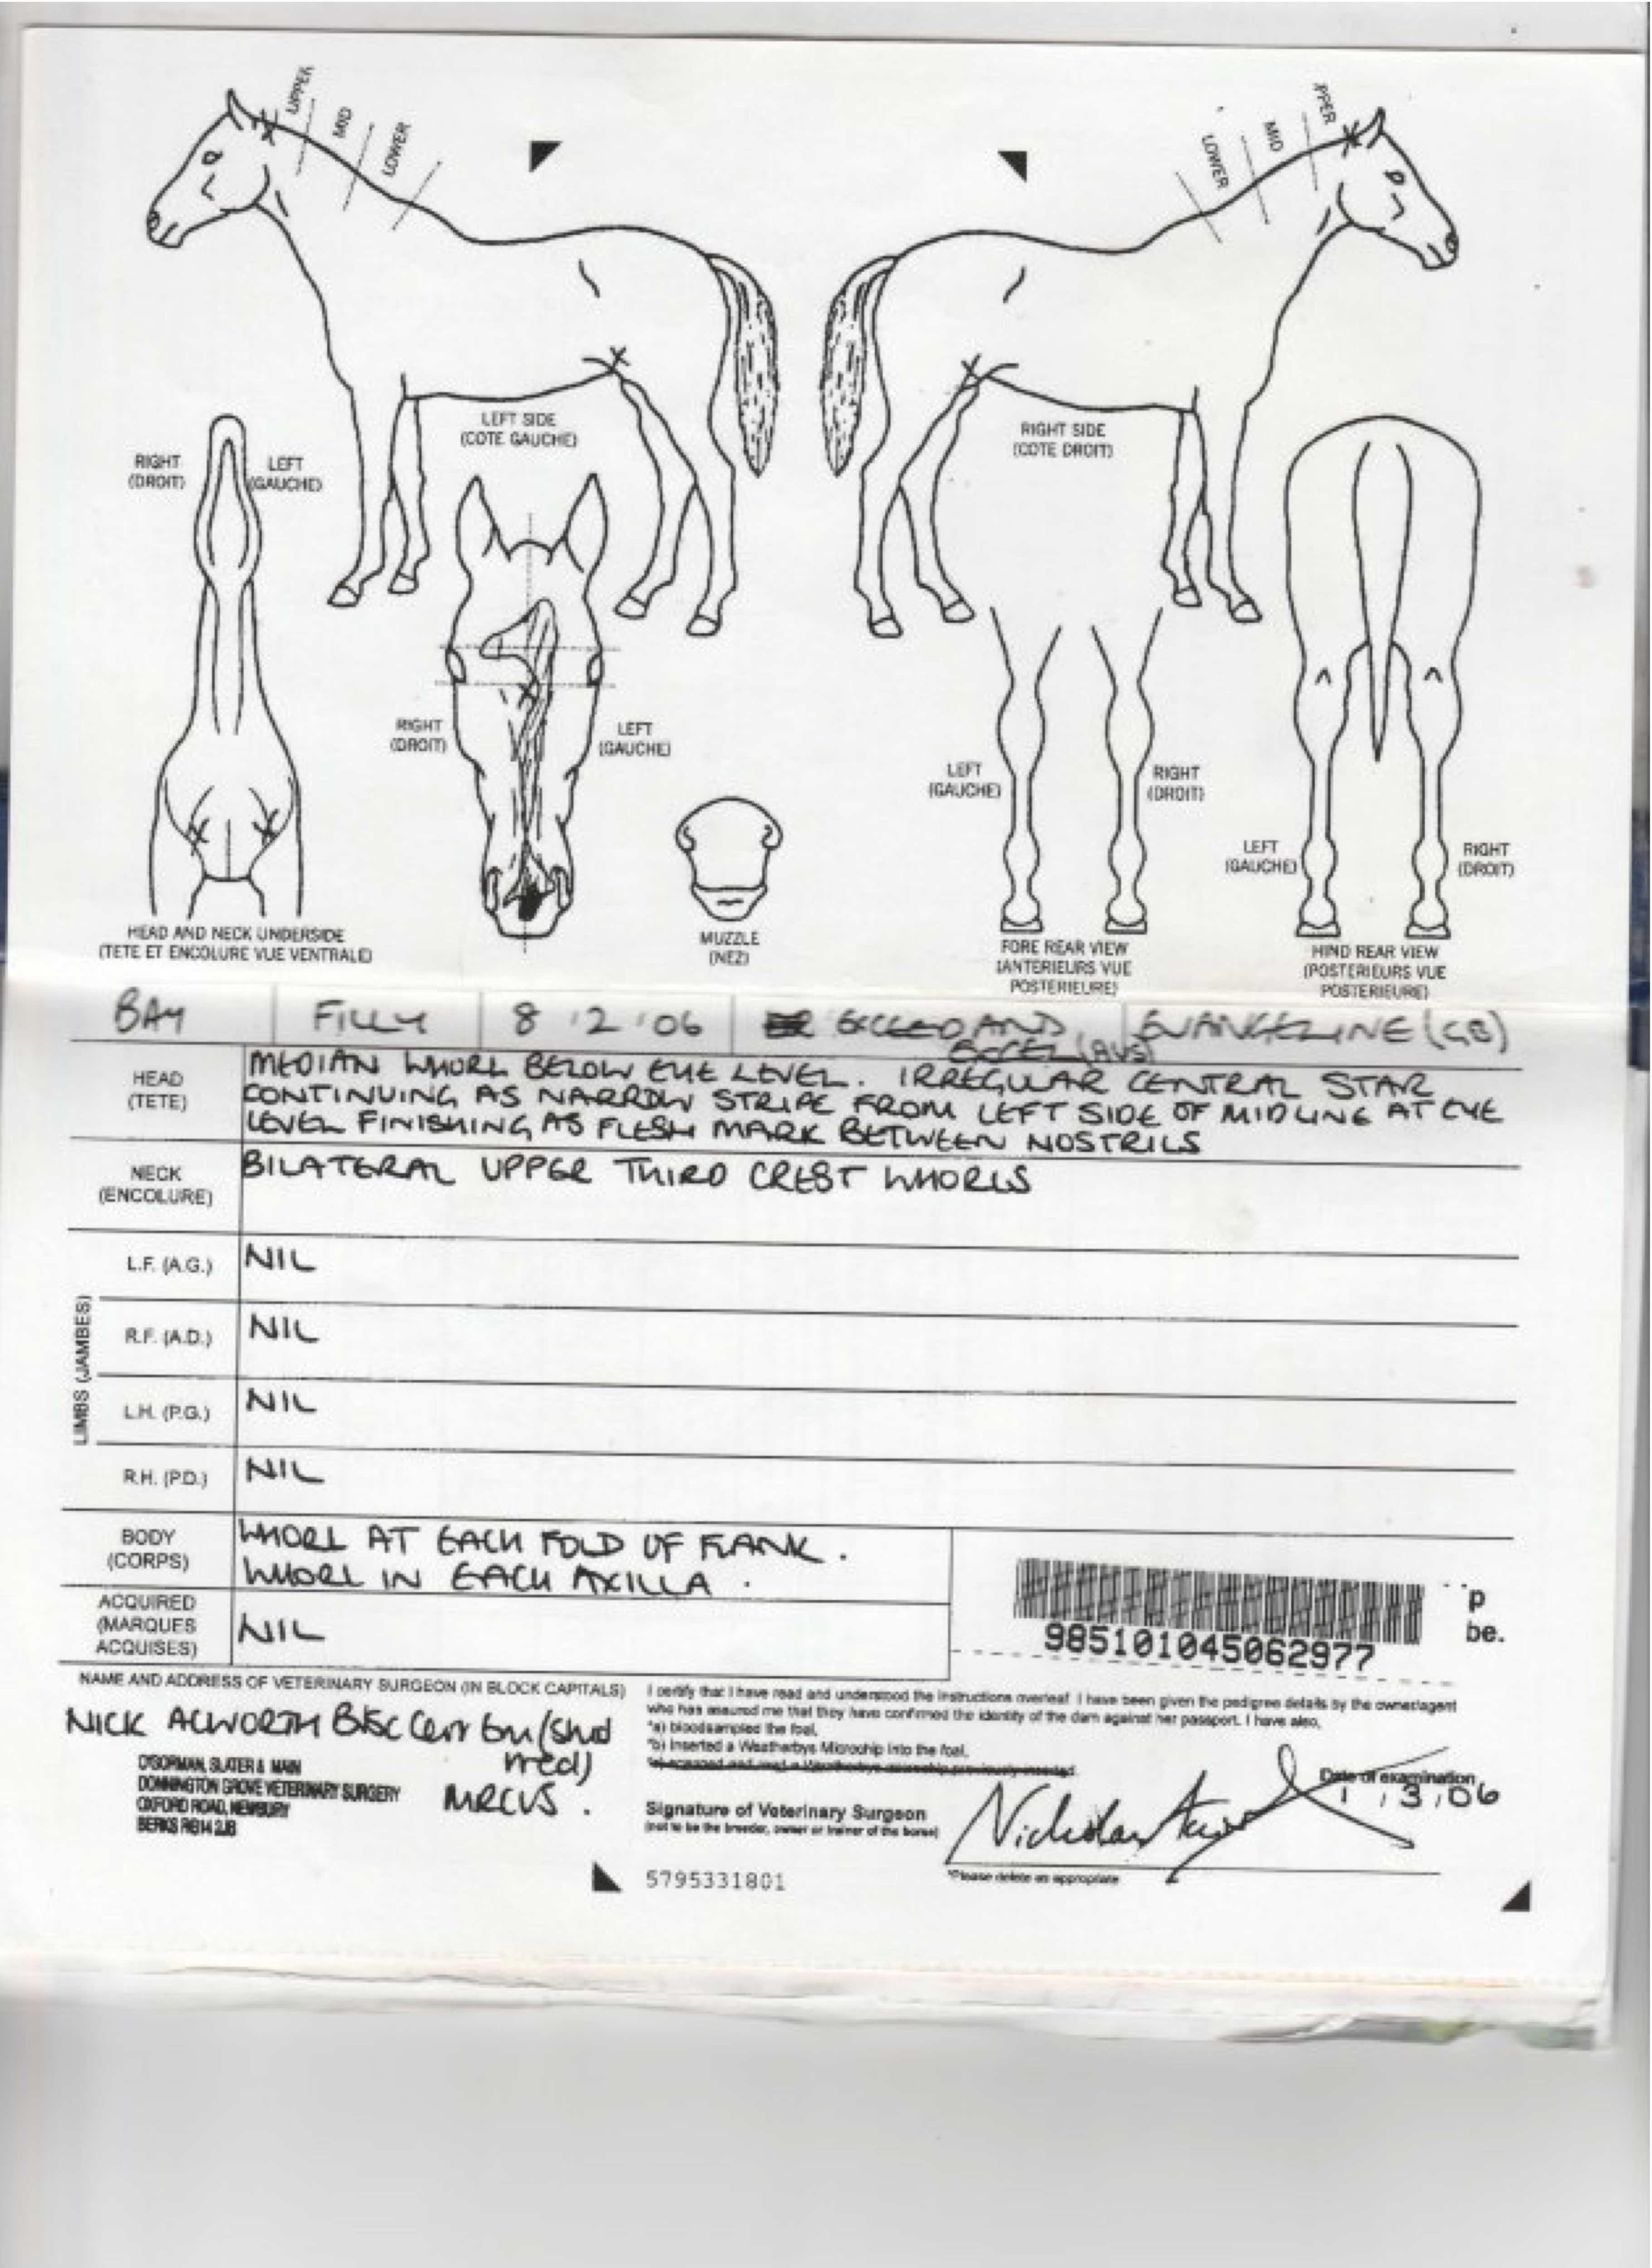 UPPER
MID
LOWER
PPER
MID
LOWER
LEFT SIDE
(COTE GAUCHE)
RIGHT SIDE
(COTE DROIT)
RIGHT
(DROIT)
LEFT
(GAUCHE)
RIGHT
(DROIT)
LEFT
(GAUCHE)
LEFT
(GAUCHE)
RIGHT
(DROIT)
LEFT
(GAUCHE)
RIGHT
(DROIT)
HEAD AND NECK UNDERSIDE
(TETE ET ENCOLURE VUE VENTRALE)
MUZZLE
(NEZ)
FORE REAR VIEW
(ANTERIEURS VUE
POSTERIEURE)
HIND REAR VIEW
(POSTERIEURS VUE
POSTERIEURE)
BAY FILLY 8 2 06 EXCEED AND EVANGELINE (GB)
EXCEL (AUS)
HEAD
(TETE)
MEDIAN WHORL BELOW EYE LEVEL. IRREGULAR CENTRAL STAR
CONTINUING AS NARROW STRIPE FROM LEFT SIDE OF MIDLINE AT EYE
LEVEL FINISHING AS FLESH MARK BETWEEN NOSTRILS
NECK
(ENCOLURE)
BILATERAL UPPER THIRD CREST WHORLS
LIMBS (JAMBES)
L.F. (A.G.) NIL
R.F. (A.D.) NIL
L.H. (P.G.) NIL
R.H. (P.D.) NIL
BODY
(CORPS)
WHORL AT EACH FOLD OF FLANK.
WHORL IN EACH AXILLA.
ACQUIRED
(MARQUES
ACQUISES)
NIL
p
be.
985101045062977
NAME AND ADDRESS OF VETERINARY SURGEON (IN BLOCK CAPITALS)
NICK ACWORTH BVSc Cert Em (Stud
Med)
MRCVS.
O'GORMAN, SLATER & MAIN
DONNINGTON GROVE VETERINARY SURGERY
OXFORD ROAD, NEWBURY
BERKS RG14 2JB
I certify that I have read and understood the instructions overleaf. I have been given the pedigree details by the owner/agent
who has assured me that they have confirmed the identity of the dam against her passport. I have also,
*a) bloodsampled the foal,
*b) inserted a Weatherbys Microchip into the foal,
*c) scanned and read a Weatherbys microchip previously inserted.
Date of examination
1 3 06
Signature of Veterinary Surgeon
(not to be the breeder, owner or trainer of the horse)
*Please delete as appropriate
5795331801